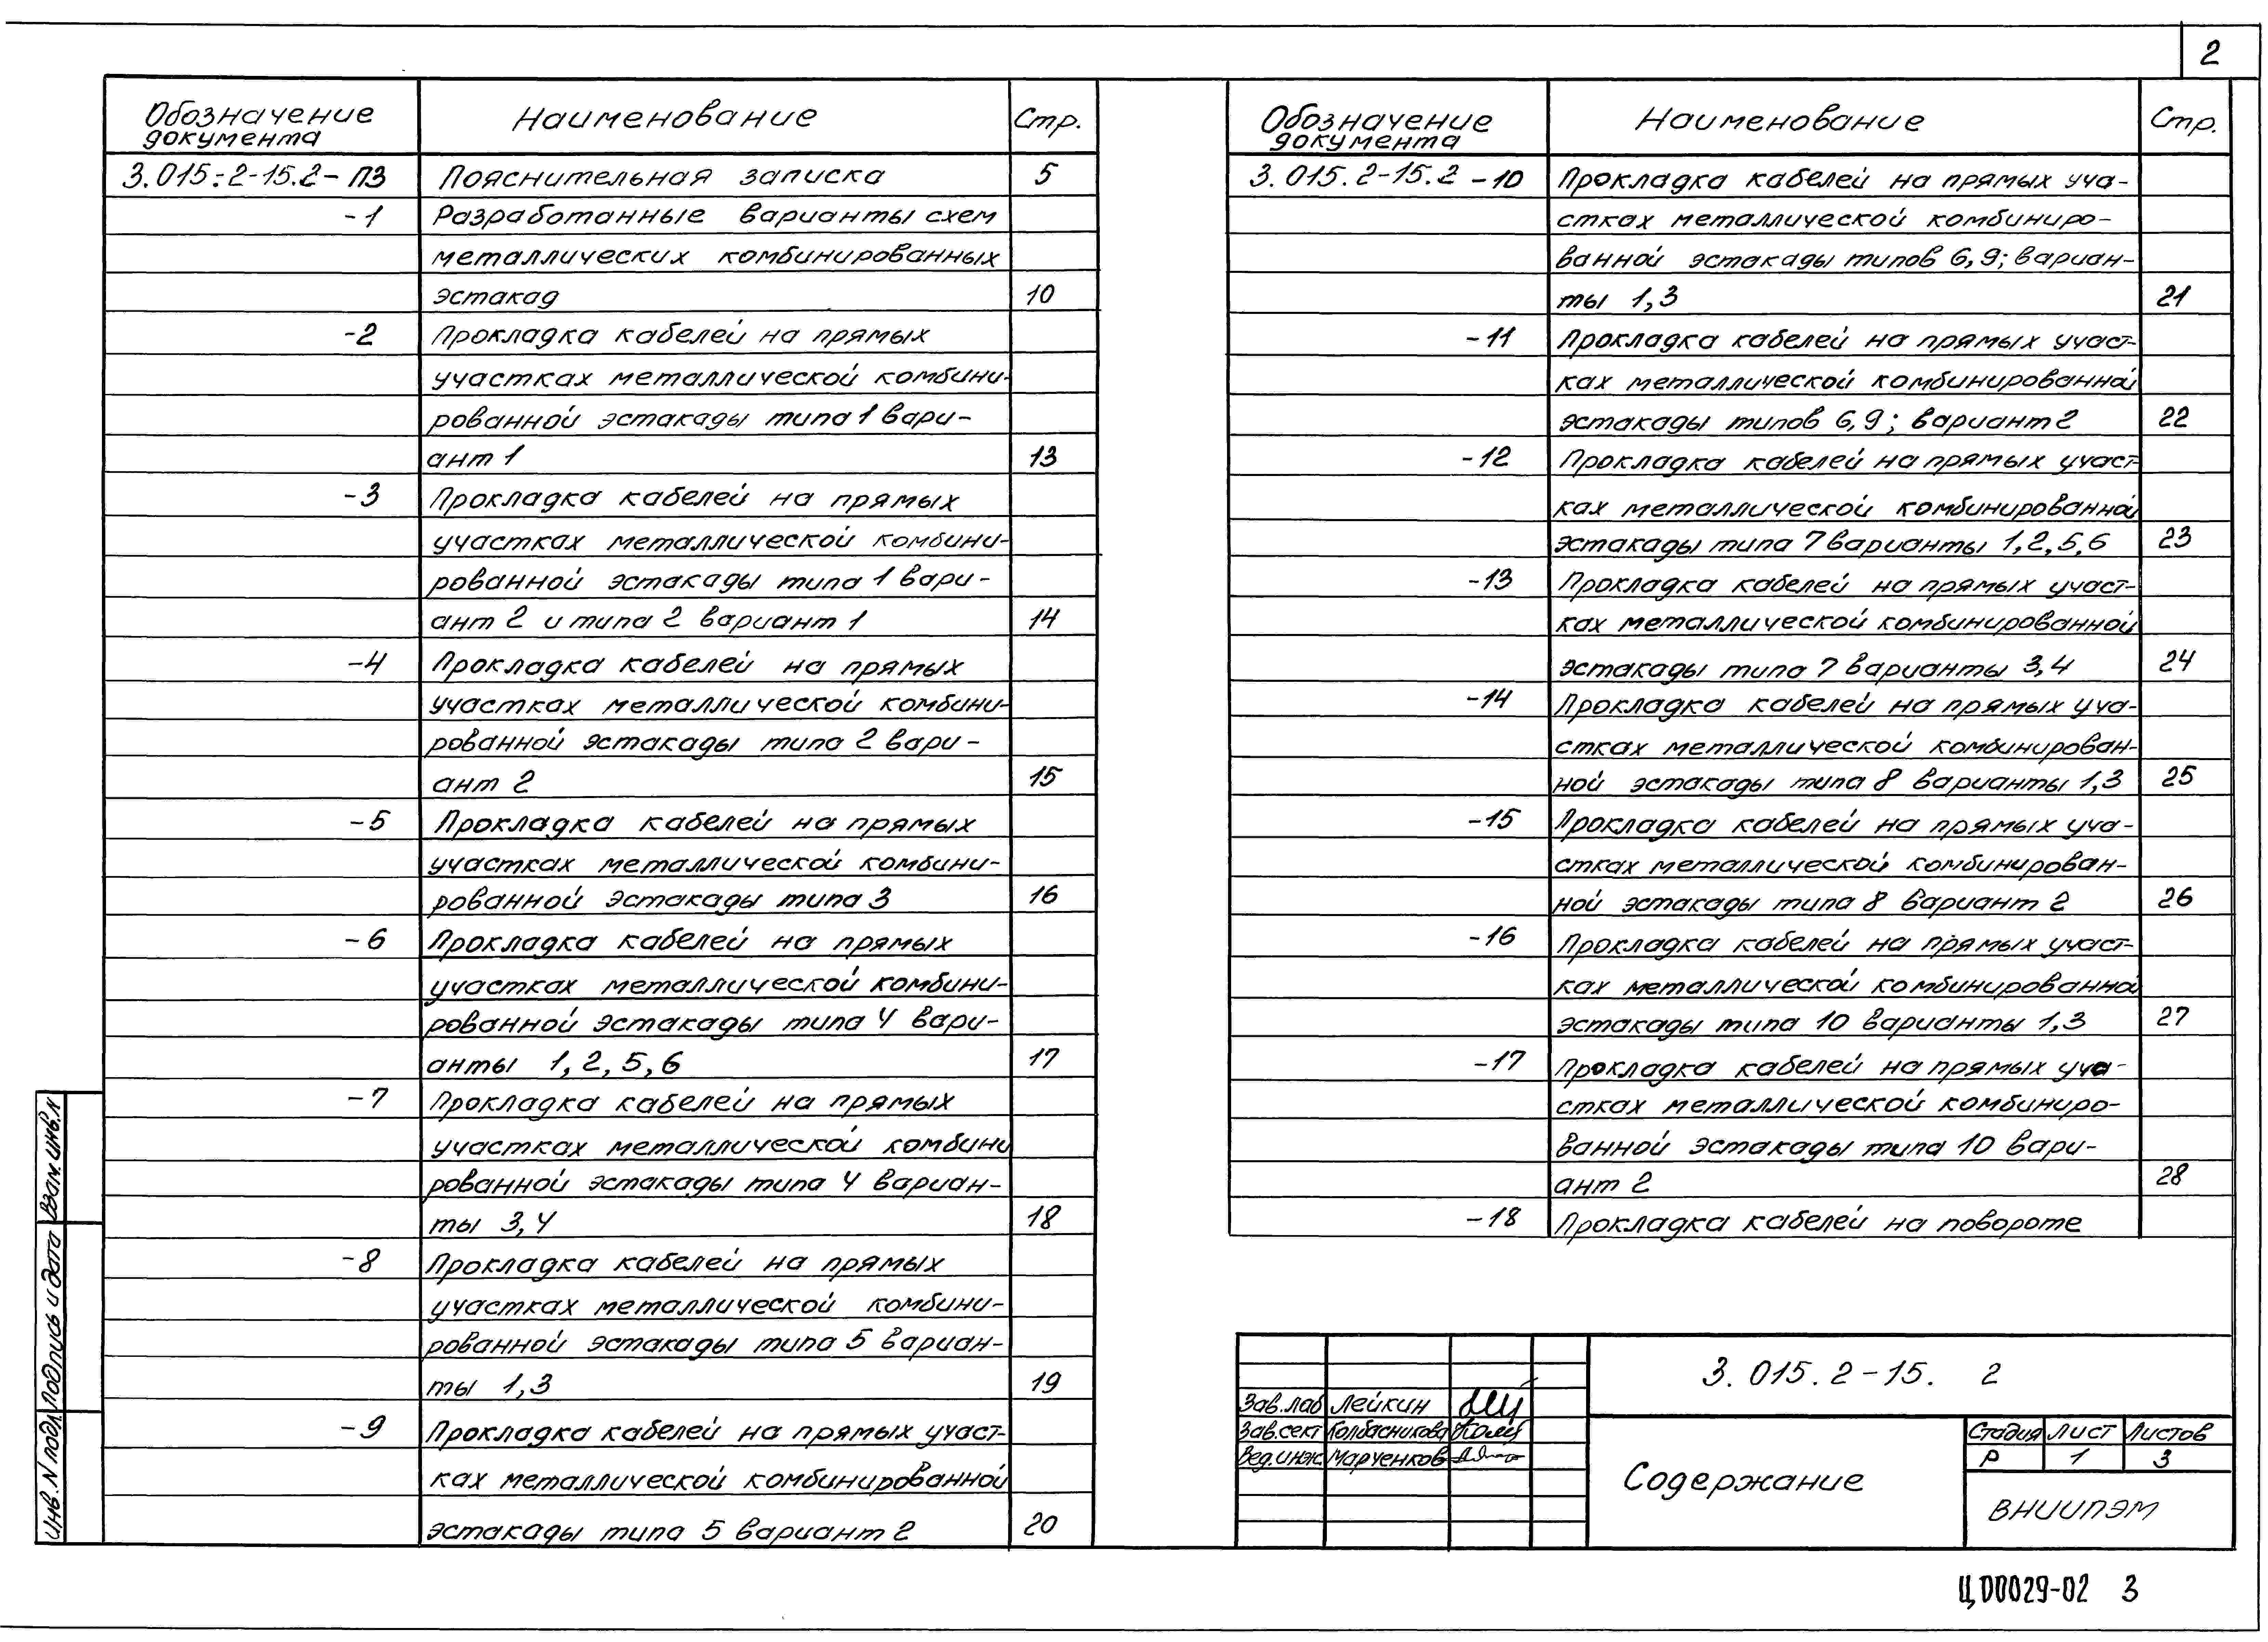 2
Обозначение документа Наименование Стр.
3.015.2-15.2-ПЗ Пояснительная записка 5
-1 Разработанные варианты схем
металлических комбинированных
эстакад 10
-2 Прокладка кабелей на прямых
участках металлической комбини-
рованной эстакады типа 1 вари-
ант 1 13
-3 Прокладка кабелей на прямых
участках металлической комбини-
рованной эстакады типа 1 вари-
ант 2 и типа 2 вариант 1 14
-4 Прокладка кабелей на прямых
участках металлической комбини-
рованной эстакады типа 2 вари-
ант 2 15
-5 Прокладка кабелей на прямых
участках металлической комбини-
рованной эстакады типа 3 16
-6 Прокладка кабелей на прямых
участках металлической комбини-
рованной эстакады типа 4 вари-
анты 1, 2, 5, 6 17
-7 Прокладка кабелей на прямых
участках металлической комбини
рованной эстакады типа 4 вариан-
ты 3, 4 18
-8 Прокладка кабелей на прямых
участках металлической комбини-
рованной эстакады типа 5 вариан-
ты 1, 3 19
-9 Прокладка кабелей на прямых участ-
ках металлической комбинированной
эстакады типа 5 вариант 2 20
Обозначение документа Наименование Стр.
3.015.2-15.2-10 Прокладка кабелей на прямых уча-
стках металлической комбиниро-
ванной эстакады типов 6, 9; вариан-
ты 1, 3 21
-11 Прокладка кабелей на прямых участ-
ках металлической комбинированной
эстакады типов 6, 9; вариант 2 22
-12 Прокладка кабелей на прямых участ-
ках металлической комбинированной
эстакады типа 7 варианты 1, 2, 5, 6 23
-13 Прокладка кабелей на прямых участ-
ках металлической комбинированной
эстакады типа 7 варианты 3, 4 24
-14 Прокладка кабелей на прямых уча-
стках металлической комбинирован-
ной эстакады типа 8 варианты 1, 3 25
-15 Прокладка кабелей на прямых уча-
стках металлической комбинирован-
ной эстакады типа 8 вариант 2 26
-16 Прокладка кабелей на прямых участ-
ках металлической комбинированной
эстакады типа 10 варианты 1, 3 27
-17 Прокладка кабелей на прямых уча-
стках металлической комбиниро-
ванной эстакады типа 10 вари-
ант 2 28
-18 Прокладка кабелей на повороте
Взам. инв. N
Подпись и дата
Инв. N подл
3.015.2-15. 2
Зав. лаб Лейкин
Зав. сект Колбасникова
Вед. инж Марченков
Содержание
Стадия Лист Листов
Р 1 3
ВНИИПЭМ
Ц00029-02 3